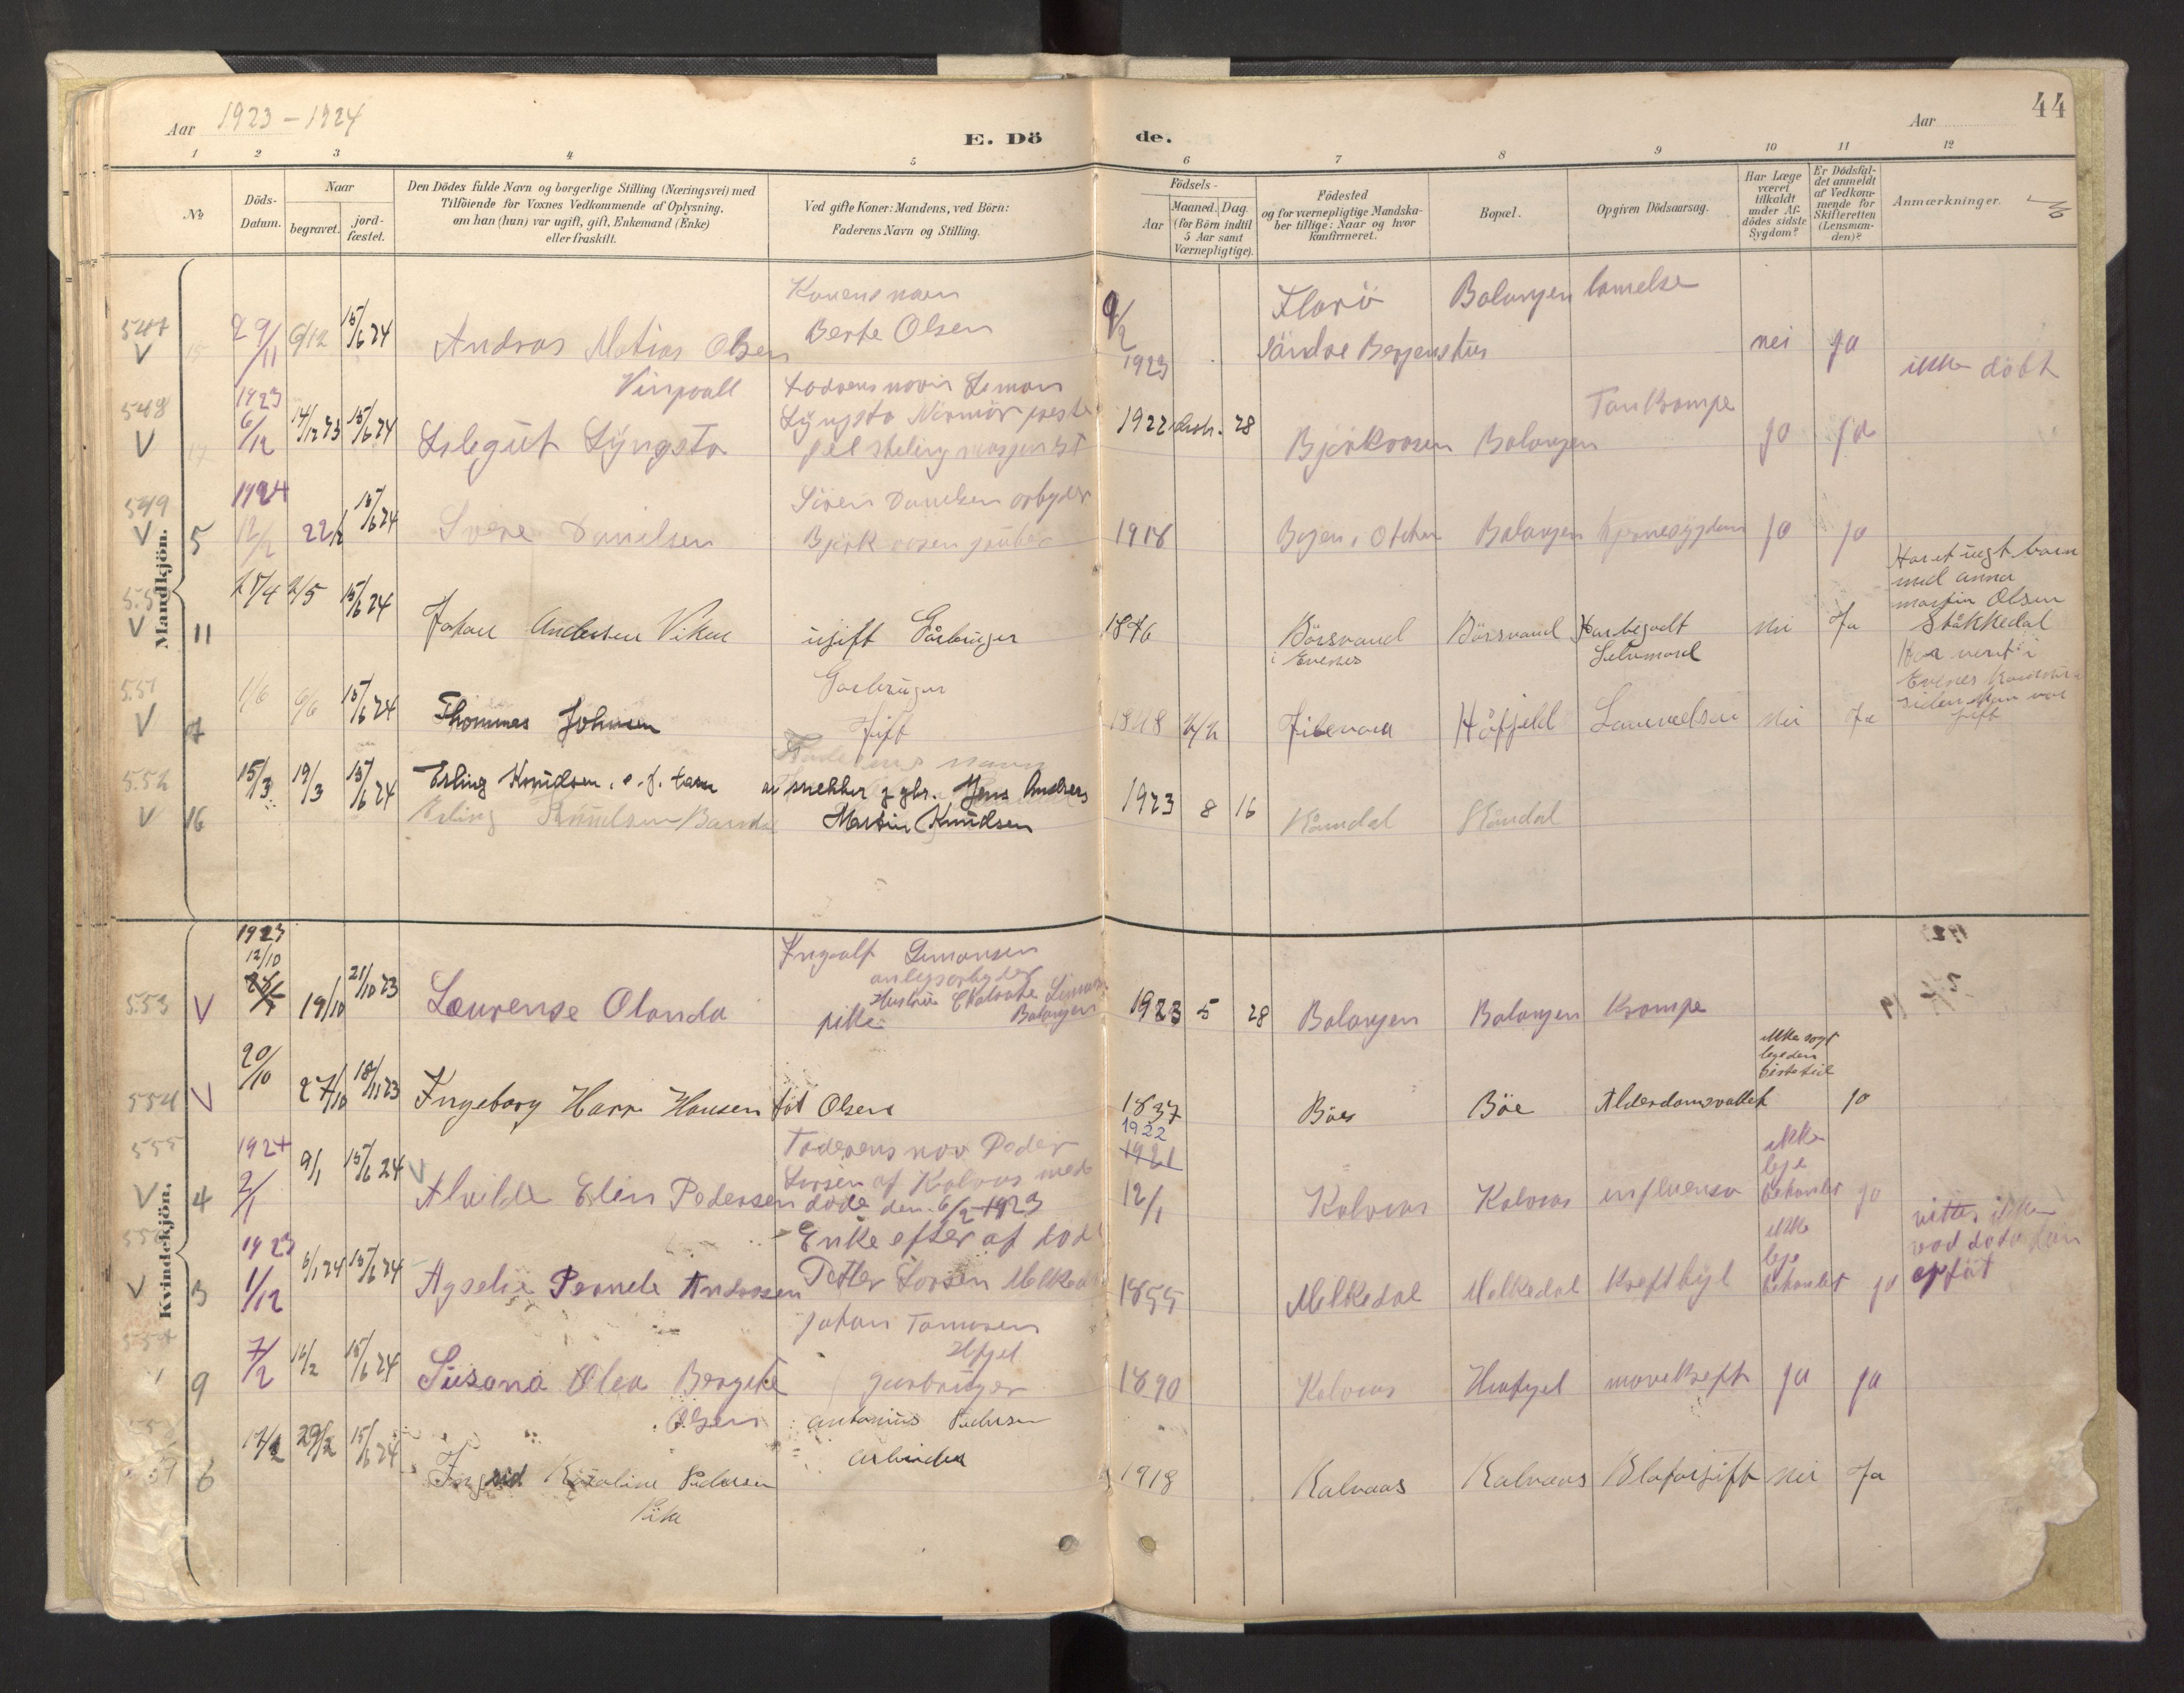 Aar 1923 - 1924
E. Dö
de.
Aar
44
1 2 3 4 5 6 7 8 9 10 11 12
№
Döds-
Datum.
Naar
begravet.
jord-
fæstet.
Den Dödes fulde Navn og borgerlige Stilling (Næringsvei) med
Tilföiende for Voxnes Vedkommende af Oplysning,
om han (hun) var ugift, gift, Enkemand (Enke)
eller fraskilt.
Ved gifte Koner: Mandens, ved Börn:
Faderens Navn og Stilling.
Födsels-
Aar
Maaned. Dag.
(for Börn indtil
5 Aar samt
Værnepligtige).
Födested
og for værnepligtige Mandska-
ber tillige: Naar og hvor
konfirmeret.
Bopæl.
Opgiven Dödsaarsag.
Har Læge
været
tilkaldt
under Af-
dödes sidste
Sygdom?
Er Dödsfal-
det anmeldt
af Vedkom-
mende for
Skifteretten
(Lensman-
den)?
Anmærkninger.
Mandkjön.
547 V 15 29/11 6/12 15/6 24 Andras Matias Olsen
Konens navn
Berte Olsen
9/2
1923
Florö
Söndre Bergenshus
Balangen lamelse nei ja
ikke döbt
548 V 17 1923
6/12 14/12 23 15/6 24 Vingvall
Lilegut Lyngsto
Faderens navn Simon
1922 28 Bjerkaasen Balangen Tankrampe ja ja
549 V 5 1924
12/2 22/2 15/6 24 Svere Danielsen
Sören Danelsen arbyder
Bjerkaasen gruber
1918 Balangen hjernesygdom ja ja
550 V 11 27/4 2/5 15/6 24 Johan Andersen Vikan
ugift Gårbruger
1876 Börsvand
i Evenes
Börsvand Har begaadt
Selvmord
Nei Ja
Har et uegt barn
med anna
martin Olsen
Ståkkedal
551 V 7 1/6 6/6 15/6 24 Thommas Johnsen
Gaarbruger
Gift
1848 Hofjeld Nei Ja
Har vert i
Evenes Kommune
siden han var
gift
552 V 16 15/3 19/3 15/6 24 Erling Knudsen, e. f. tam
Erling Knudsen Barn
Faderens navn
snekker Jens Anders
Martin Knudsen
1923 8 16 Råndal Råndal
Kvindekjön.
553 V 1923
12/10
19/10 21/10 23 Laurense Olanda
Ingvalf Simonsen
anlegsarbyder
Balangen
pike
1923 5 28 Balangen Balangen Krampe
554 V 20/10 27/10 18/11 23 Ingeborg Harr Hansen föt Olsen
1837 Böes Böe Alderdomsvakket
ikke sögt
lege den
siste tid
ja
555 V 4 1924
2/1 9/1 15/6 24 Alvilde Elen Pedersen
Faderens nav Peder
Larsen af Kalvaas med
döde den 6/2 1923
1922
1921
12/1 Kalvaas Kalvaas influensa
ikke
lege
behanlet ja
556 V 3 1923
1/12 6/1 24 15/6 24 Agselie Pernele Andrasen
Enke efter af död
Petter Larsen Melkedal
1855 Melkedal Melkedal Kreftbyl
ikke
lege
behanlet ja
vittes ikke
vad dato hun
er föt
557 9 7/2 16/2 15/6 24 Susana Olea Bergete
Olsen
Johan Tomasen
Hofjel
gaarbruger
1890 Kalvaas Hofgel mavekreft ja ja
6 17/2 29/2 15/6 24 Ingrid Karoline Pedersen
Pike
Antonius Pedersen
Arbeider
1918 Kalvaas Kalvaas Bloforgift Nei Ja